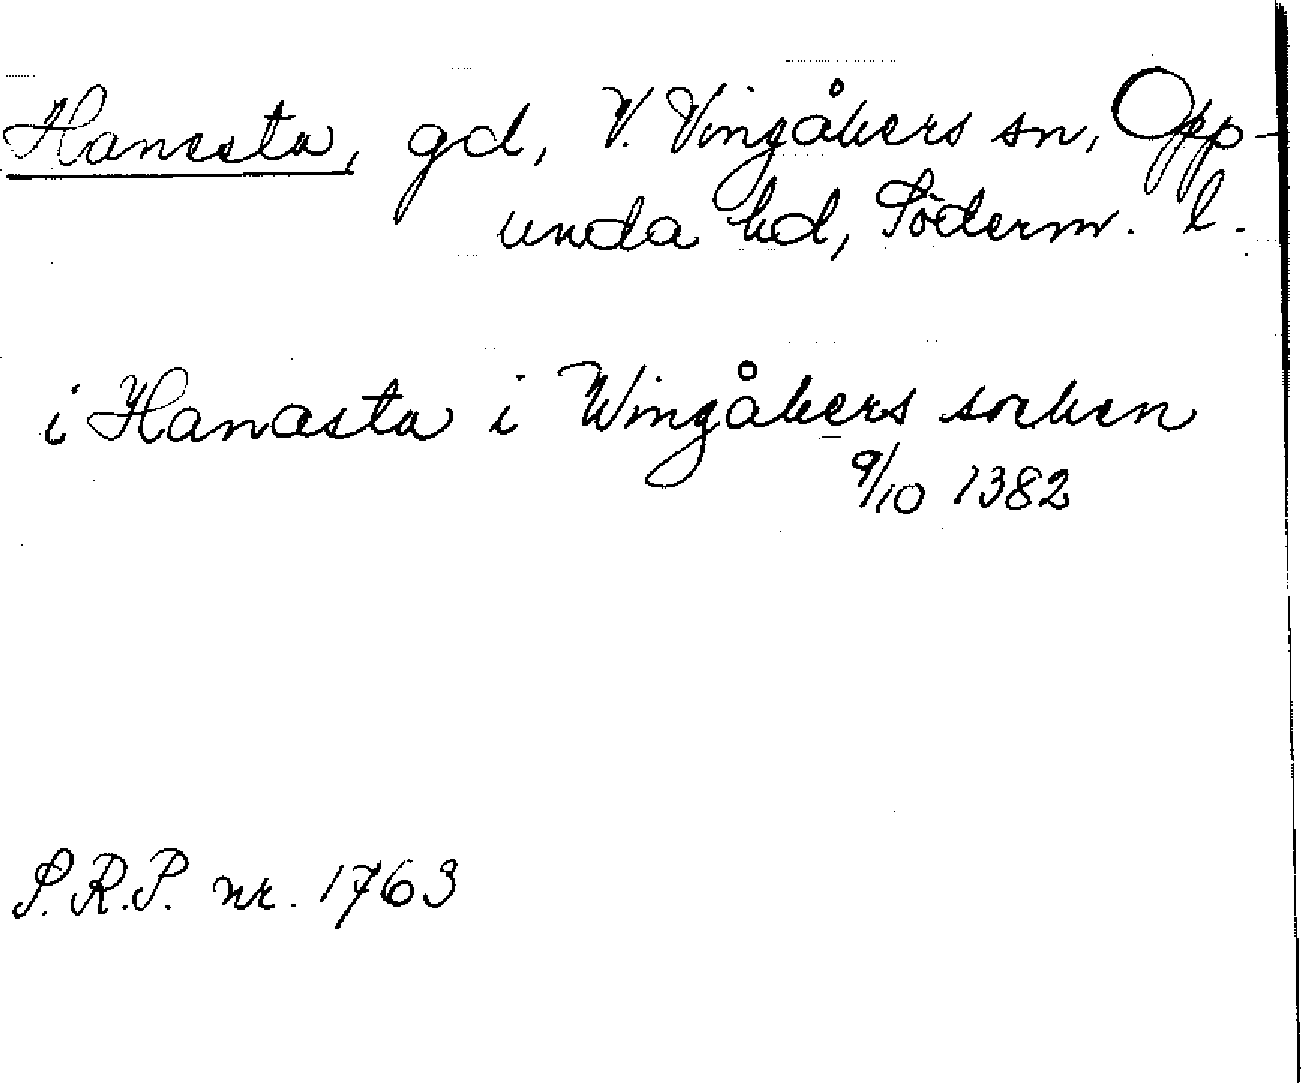 Hanesta, gd, V. Vingåkers sn, Opp-
unda hd, Söderm. l.
i Hanæsta i Wingåkers socken
9/10 1382
S.R.P. nr. 1763